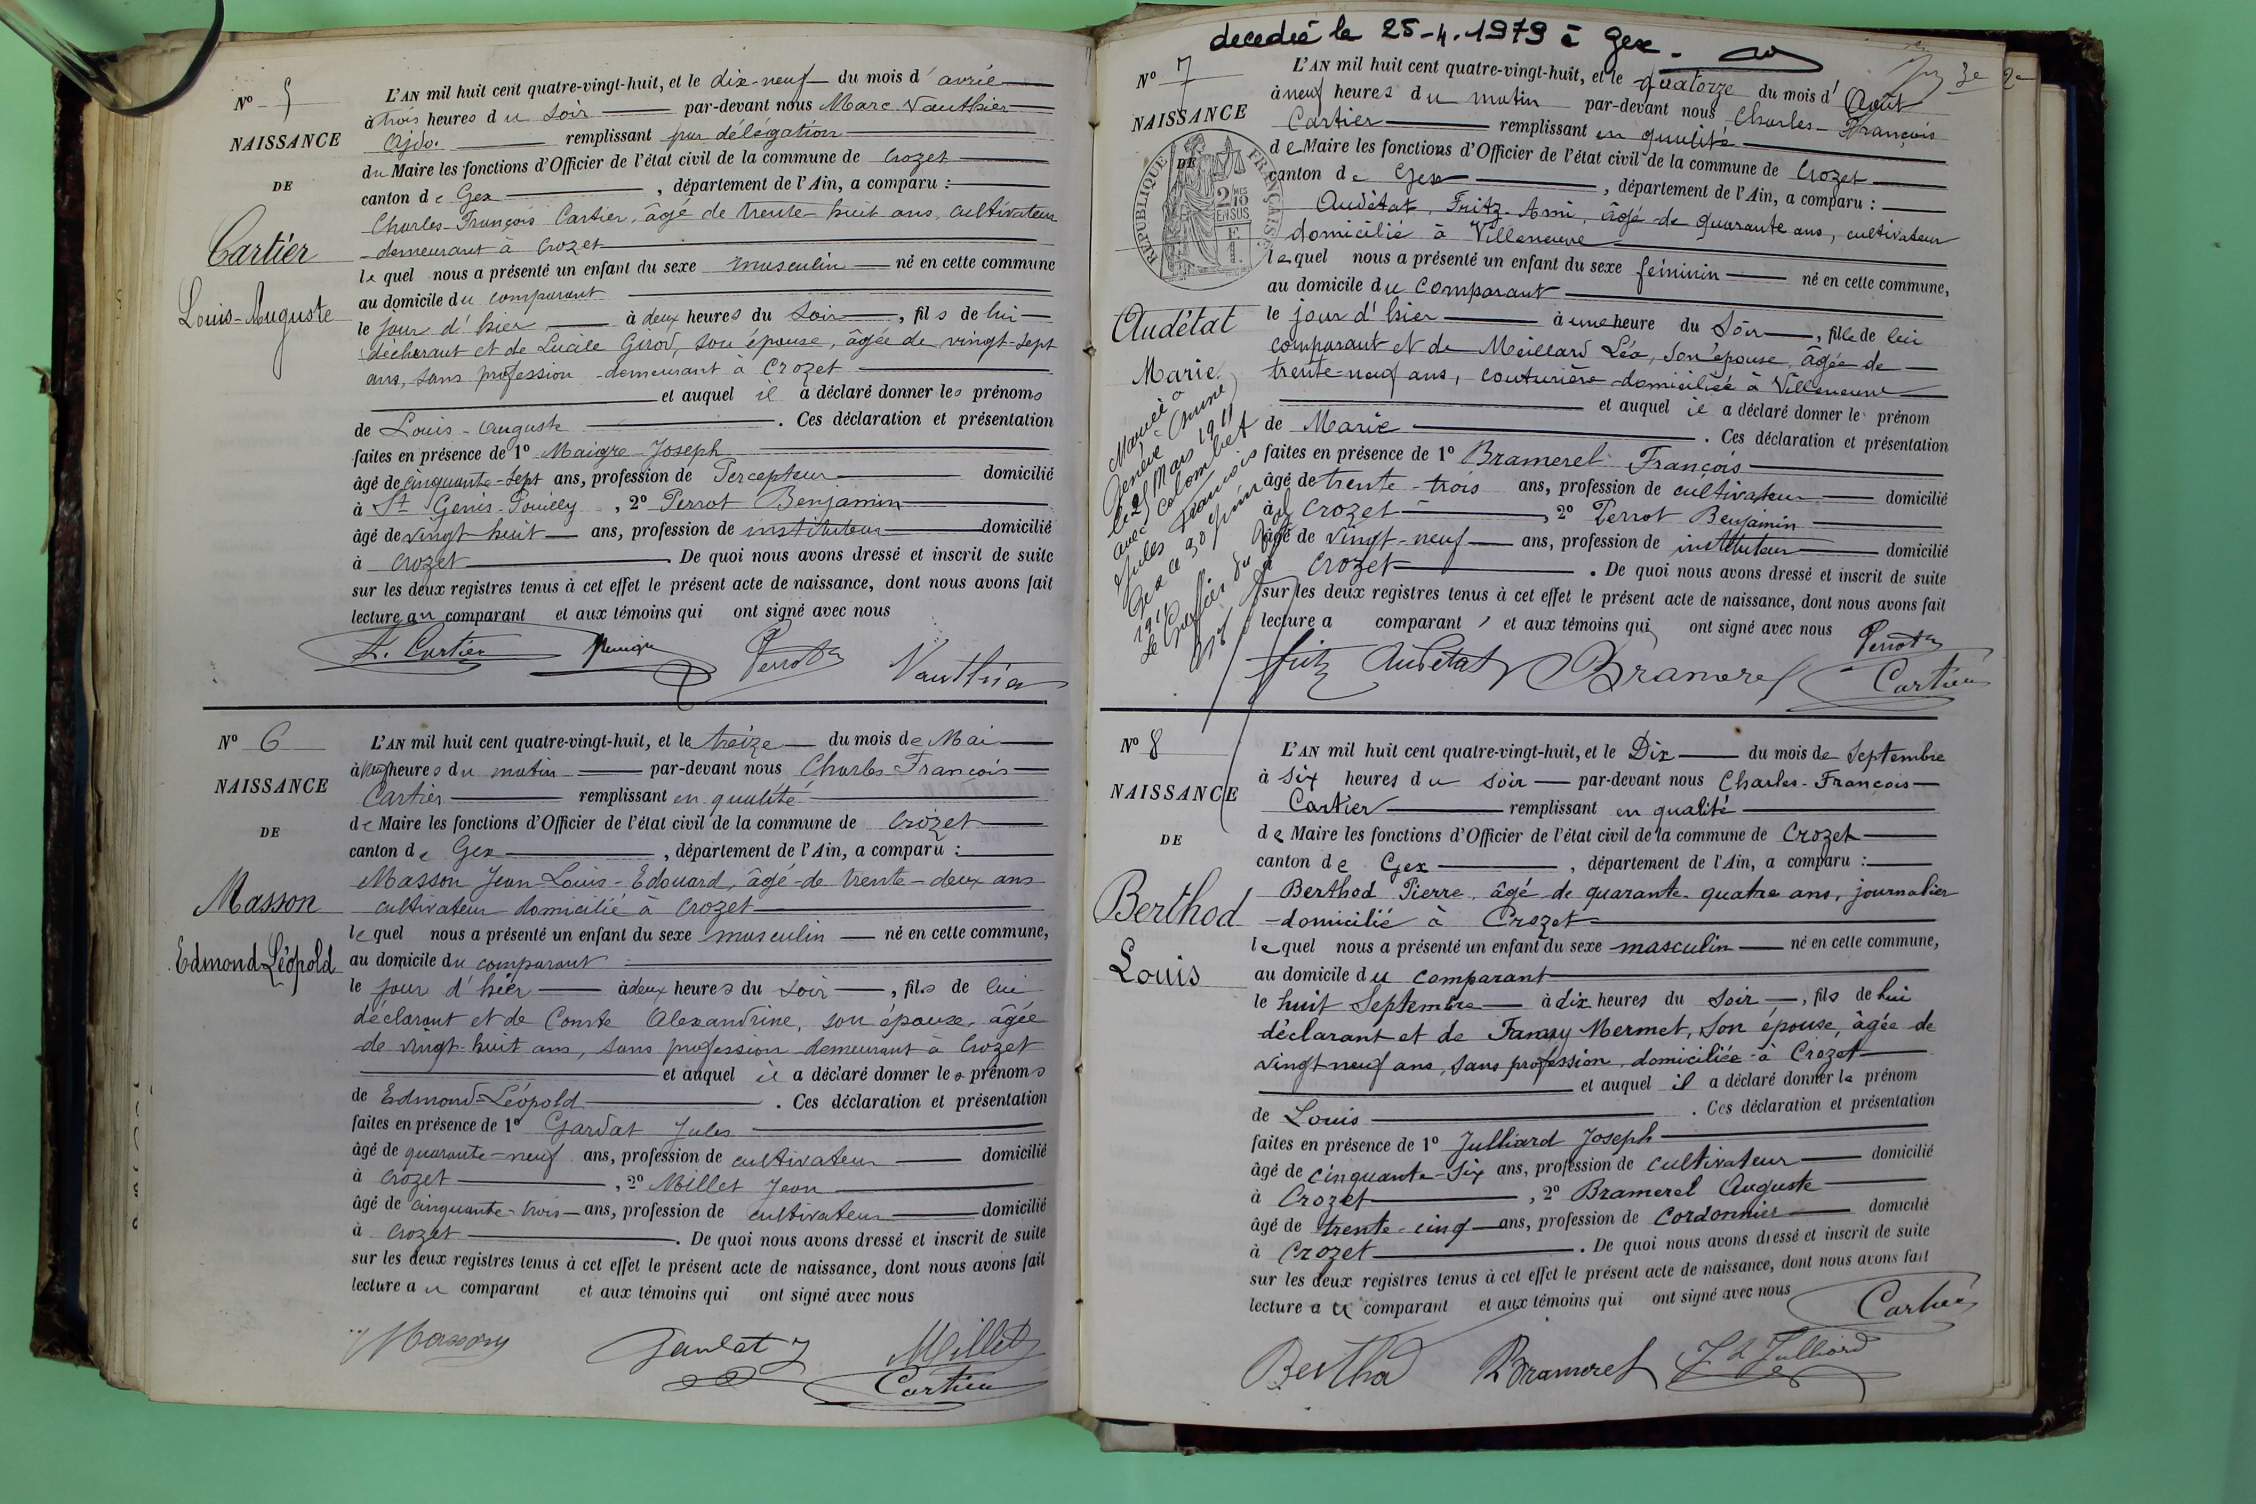 N° 5
NAISSANCE
DE
Cartier
Louis-Auguste
L'AN mil huit cent quatre-vingt-huit, et le dix-neuf du mois d'avril
à trois heures du soir par-devant nous Marc Vauthier
Ajdo. remplissant par délégation
du Maire les fonctions d'Officier de l'état civil de la commune de Crozet
canton de Gex, département de l'Ain, a comparu :
Charles-François Cartier, âgé de trente-huit ans, cultivateur
demeurant à Crozet
lequel nous a présenté un enfant du sexe masculin né en cette commune
au domicile du comparant
le jour d'hier à deux heures du soir, fils de lui
déclarant et de Lucile Girod, son épouse, âgée de vingt-sept
ans, sans profession demeurant à Crozet
et auquel il a déclaré donner les prénoms
de Louis-Auguste. Ces déclaration et présentation
faites en présence de 1° Maigre Joseph
âgé de cinquante-sept ans, profession de Percepteur domicilié
à St Genis-Pouilly, 2° Perrot Benjamin
âgé de vingt-huit ans, profession de instituteur domicilié
à Crozet De quoi nous avons dressé et inscrit de suite
sur les deux registres tenus à cet effet le présent acte de naissance, dont nous avons fait
lecture au comparant et aux témoins qui ont signé avec nous
Cartier Maigre Perrot Vauthier
N° 6
NAISSANCE
DE
Masson
Edmond-Léopold
L'AN mil huit cent quatre-vingt-huit, et le treize du mois de Mai
à heures du matin par-devant nous Charles-François
Cartier remplissant en qualité
de Maire les fonctions d'Officier de l'état civil de la commune de Crozet
canton de Gex, département de l'Ain, a comparu :
Masson Jean-Louis-Edouard, âgé de trente-deux ans
cultivateur domicilié à Crozet
lequel nous a présenté un enfant du sexe masculin né en cette commune,
au domicile du comparant
le jour d'hier à deux heures du soir, fils de lui
déclarant et de Comte Alexandrine, son épouse, âgée
de vingt-huit ans, sans profession demeurant à Crozet
et auquel il a déclaré donner les prénoms
de Edmond-Léopold. Ces déclaration et présentation
faites en présence de 1° Gardat Jules
âgé de quarante-neuf ans, profession de cultivateur domicilié
à Crozet, 2° Millet Jean
âgé de cinquante-trois ans, profession de cultivateur domicilié
à Crozet. De quoi nous avons dressé et inscrit de suite
sur les deux registres tenus à cet effet le présent acte de naissance, dont nous avons fait
lecture au comparant et aux témoins qui ont signé avec nous
Masson Millet
Cartier
decedée le 25-4-1979 à Gex.
N° 7
NAISSANCE
DE
RÉPUBLIQUE FRANÇAISE
Audétat
Marie
Mariée à
Genève
le 21 Mars 1911
avec Colombet
Jules François
Gex le 30 Juin
L'AN mil huit cent quatre-vingt-huit, et le quatorze du mois d'Août
à neuf heures du matin par-devant nous Charles-François
Cartier remplissant en qualité
de Maire les fonctions d'Officier de l'état civil de la commune de Crozet
canton de Gex, département de l'Ain, a comparu :
Audétat, Fritz-Ami, âgé de quarante ans, cultivateur
domicilié à Villeneuve
lequel nous a présenté un enfant du sexe féminin né en cette commune,
au domicile du comparant
le jour d'hier à une heure du soir, fille de lui
comparant et de Meillard Léa, son épouse, âgée de
trente-neuf ans, couturière domiciliée à Villeneuve
et auquel il a déclaré donner le prénom
de Marie. Ces déclaration et présentation
faites en présence de 1° Bramerel François
âgé de trente-trois ans, profession de cultivateur domicilié
à Crozet, 2° Perrot Benjamin
âgé de vingt-neuf ans, profession de instituteur domicilié
Crozet. De quoi nous avons dressé et inscrit de suite
sur les deux registres tenus à cet effet le présent acte de naissance, dont nous avons fait
lecture a comparant et aux témoins qui ont signé avec nous
Fritz Audétat Bramerel Perrot
Cartier
N° 8
NAISSANCE
DE
Berthod
Louis
L'AN mil huit cent quatre-vingt-huit, et le Dix du mois de Septembre
à six heures du soir par-devant nous Charles-François
Cartier remplissant en qualité
de Maire les fonctions d'Officier de l'état civil de la commune de Crozet
canton de Gex, département de l'Ain, a comparu :
Berthod Pierre, âgé de quarante-quatre ans, journalier
domicilié à Crozet
lequel nous a présenté un enfant du sexe masculin né en cette commune,
au domicile du comparant
le huit Septembre à dix heures du soir, fils de lui
déclarant et de Fanny Mermet, son épouse, âgée de
vingt-neuf ans, sans profession, domiciliée à Crozet
et auquel il a déclaré donner le prénom
de Louis. Ces déclaration et présentation
faites en présence de 1° Julliard Joseph
âgé de cinquante-six ans, profession de cultivateur domicilié
à Crozet, 2° Bramerel Auguste
âgé de trente-cinq ans, profession de cordonnier domicilié
à Crozet. De quoi nous avons dressé et inscrit de suite
sur les deux registres tenus à cet effet le présent acte de naissance, dont nous avons fait
lecture au comparant et aux témoins qui ont signé avec nous
Cartier
Berthod Bramerel Julliard